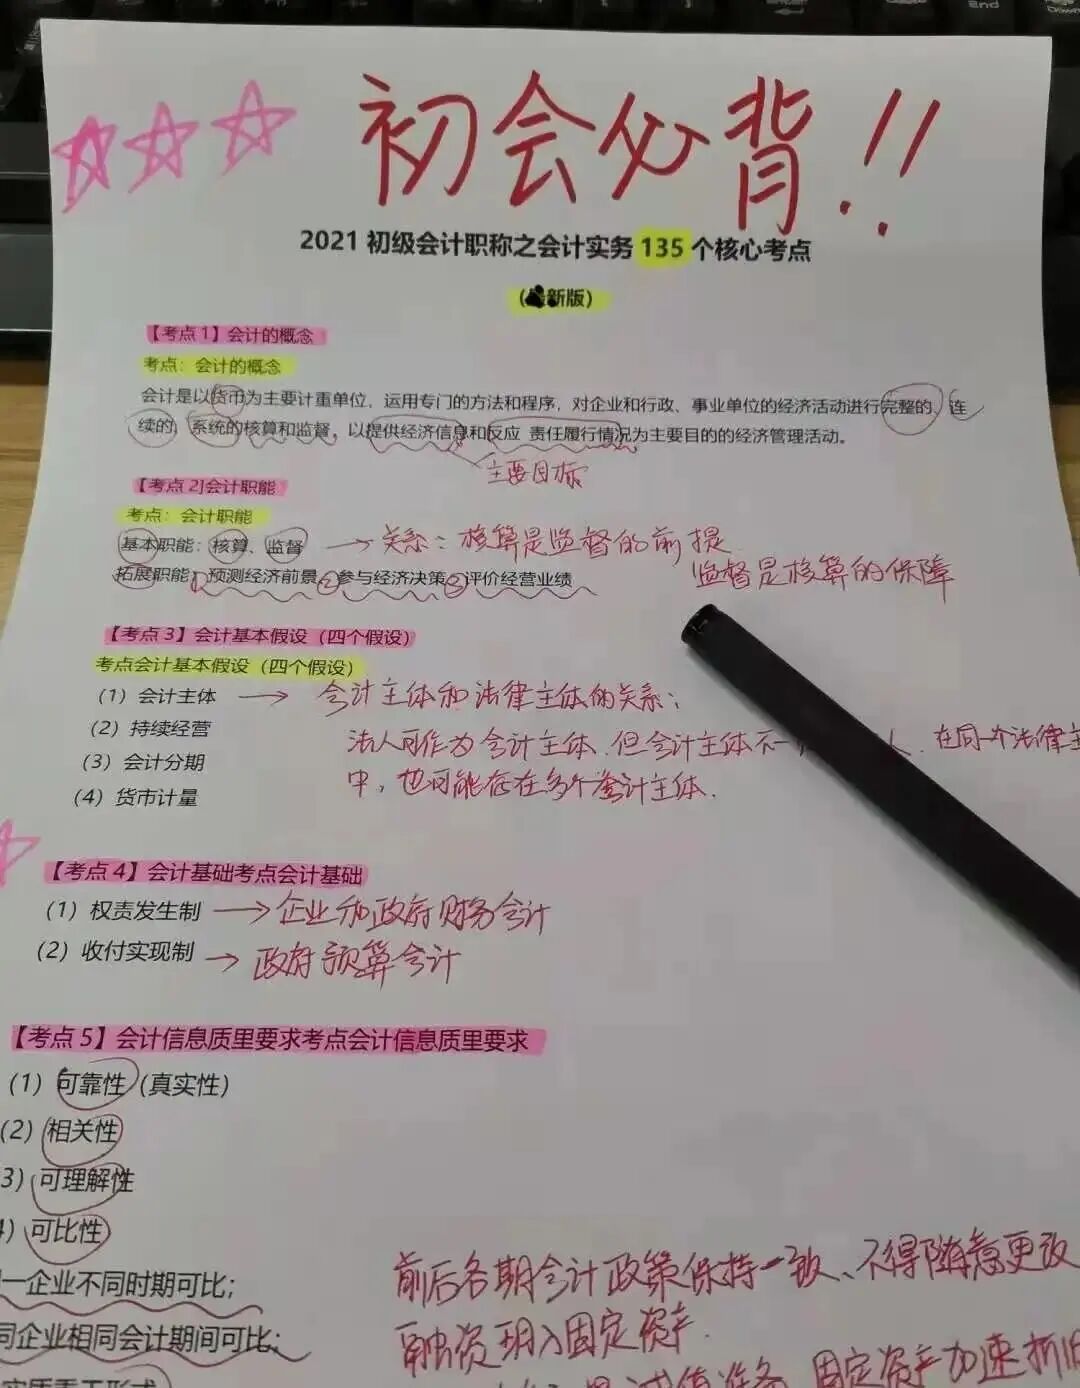 初会必背!!
2021 初级会计职称之会计实务 135 个核心考点
新版)
【考点 1】会计的概念
考点：会计的概念
会计是以货币为主要计重单位，运用专门的方法和程序，对企业和行政、事业单位的经济活动进行完整的、连
续的、系统的核算和监督，以提供经济信息和反应 责任履行情况为主要目的的经济管理活动。
主要目标
【考点 2]会计职能
考点：会计职能
基本职能：核算、监督 → 关系：核算是监督的前提
监督是核算的保障
拓展职能：①预测经济前景②参与经济决策③评价经营业绩
【考点 3】会计基本假设（四个假设）
考点会计基本假设（四个假设）
(1) 会计主体 → 会计主体和法律主体的关系：
(2) 持续经营
法人可作为会计主体，但会计主体不一 人．在同一个法律主
(3) 会计分期
中，也可能存在多个会计主体．
(4) 货币计量
【考点 4】会计基础考点会计基础
(1) 权责发生制 → 企业和政府财务会计
(2) 收付实现制 → 政府预算会计
【考点 5】会计信息质里要求考点会计信息质里要求
(1) 可靠性 (真实性)
(2) 相关性
3) 可理解性
) 可比性
一企业不同时期可比；
前后各期会计政策保持一致、不得随意更改
同企业相同会计期间可比；
融资租入固定资产．
实质重于形式
减值准备 固定资产加速折旧